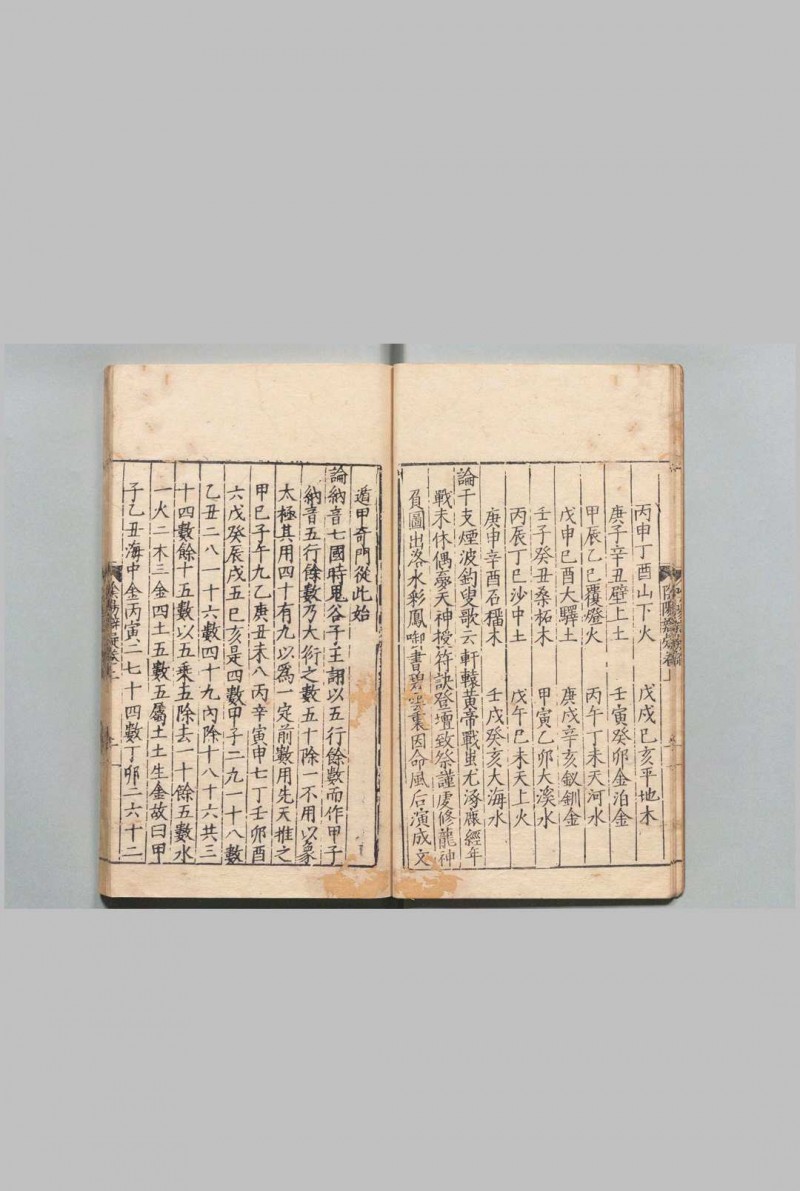 丙申丁酉山下火　戊戌己亥平地木
庚子辛丑壁上土　壬寅癸卯金泊金
甲辰乙巳覆燈火　丙午丁未天河水
戊申己酉大驛土　庚戌辛亥釵釧金
壬子癸丑桑柘木　甲寅乙卯大溪水
丙辰丁巳沙中土　戊午己未天上火
庚申辛酉石榴木　壬戌癸亥大海水
論干支煙波釣叟歌云軒轅黃帝戰蚩尤涿鹿經年
戰未休偶夢天神授符訣登壇致祭謹虔修龍神
負圖出洛水彩鳳啣書碧雲裏因命風后演成文
遁甲奇門從此始
論納音七國時鬼谷子王詡以五行餘數而作甲子
納音五行餘數乃大衍之數五十除一不用以象
太極其用四十有九以為一定前數用先天推之
甲己子午九乙庚丑未八丙辛寅申七丁壬卯酉
六戊癸辰戌五巳亥是四數甲子二九一十八數
乙丑二八一十六數四十九內除十八十六共三
十四數餘十五數以五乘五除去一十餘五數水
一火二木三金四土五數五屬土土生金故曰甲
子乙丑海中金丙寅二七十四數丁卯二六十二
陰陽辨疑卷上